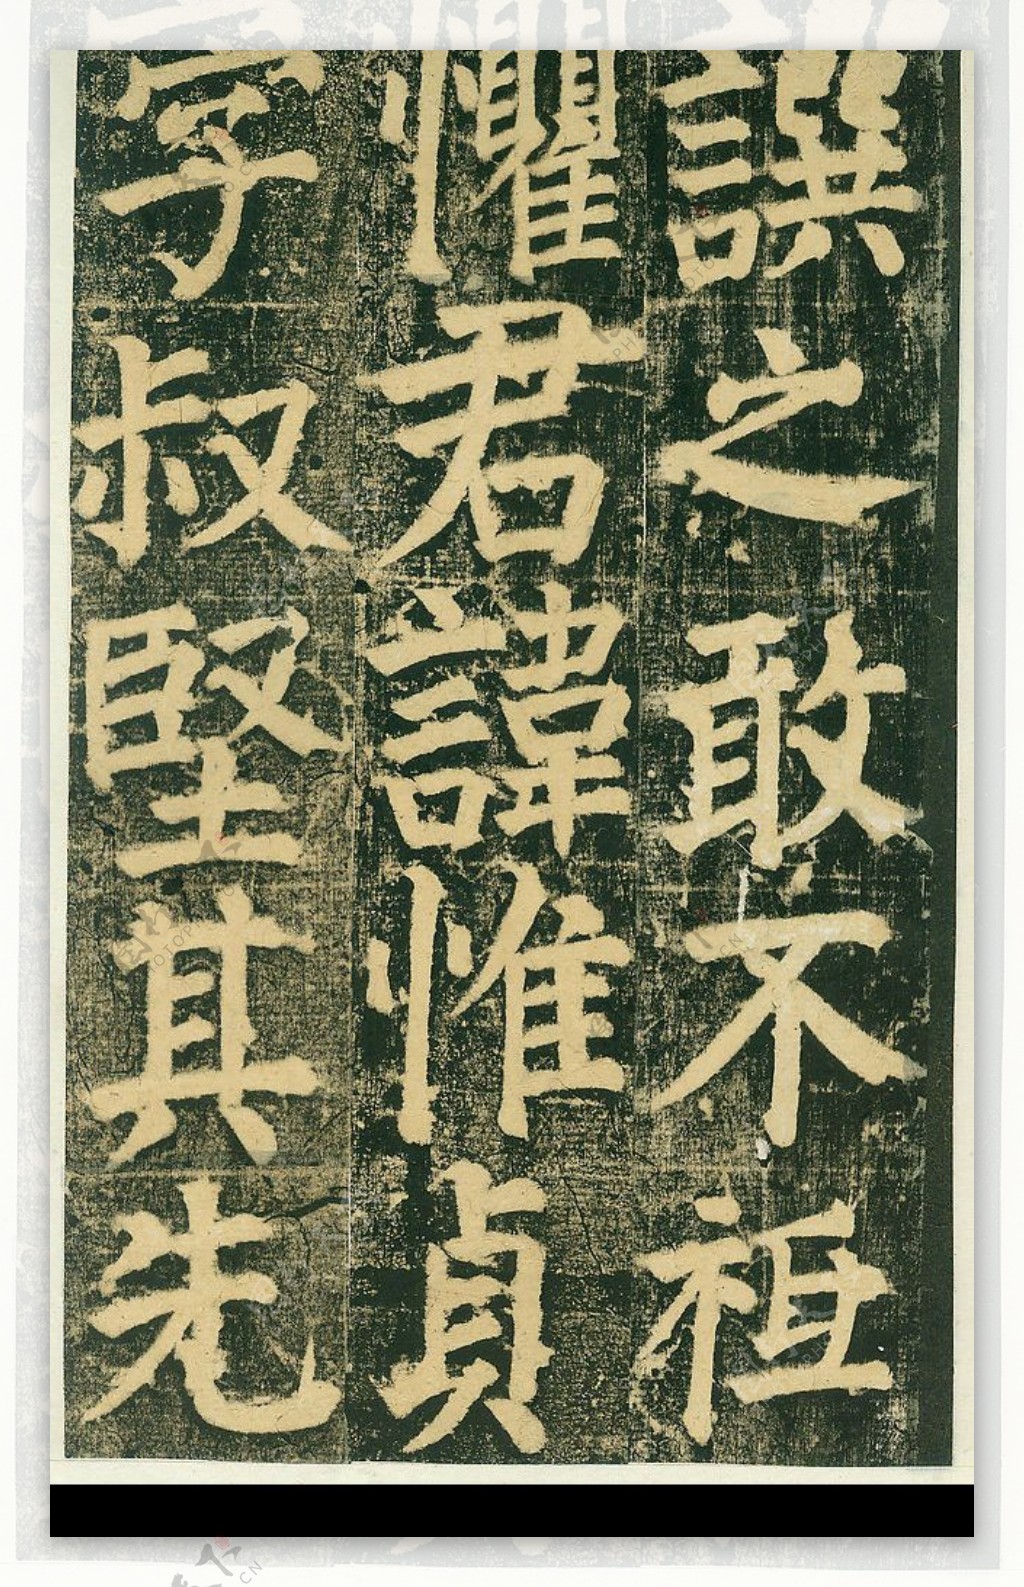 譔之敢不祖
懼君諱惟貞
字叔堅其先